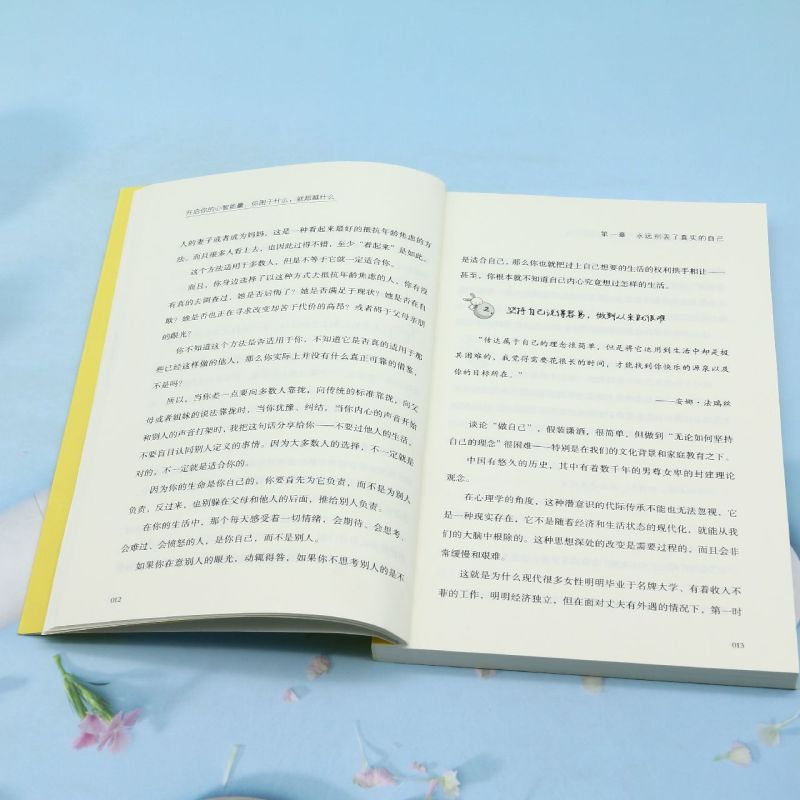 开启你的心智能量，你困于什么，就超越什么
人的妻子或者成为妈妈，这是一种看起来最好的抵抗年龄焦虑的方
法。而且很多人看上去，也因此过得不错，至少“看起来”是如此。
这个方法适用于多数人，但是不等于它就一定适合你。
而且，你身边选择了以这种方式去抵抗年龄焦虑的人，你有没
有真的去调查过，她是否后悔了？她是否满足于现状？她是否在自
欺？她是否也正在寻求改变却苦于代价的高昂？或者碍于父母亲朋
的眼光？
你不知道这个方法是否适用于你，不知道它是否真的适用于那
些已经这样做的他人，那么你实际上并没有什么真正可靠的借鉴，
不是吗？
所以，当你差一点要向多数人靠拢，向传统的标准靠拢，向父
母或者姐妹的说法靠拢时，当你犹豫、纠结，当你内心的声音开始
和别人的声音打架时，我把这句话分享给你——不要过他人的生活，
不要盲目认同别人定义的事情。因为大多数人的选择，不一定就是
对的，不一定就是适合你的。
因为你的生命是你自己的，你要首先为它负责，而不是为别人
负责，反过来，也别躲在父母和他人的后面，推给别人负责。
在你的生活中，那个每天感受着一切情绪，会期待、会思考、
会难过、会愤怒的人，是你自己，而不是别人。
如果你在意别人的眼光，动辄得咎，如果你不思考别人的是不
012
第一章 永远别丢了真实的自己
是适合自己，那么你也就把过上自己想要的生活的权利拱手相让——
甚至，你根本就不知道自己内心究竟想过怎样的生活。
坚持自己说得容易，做到以来就很难
“传达属于自己的理念很简单，但是将它运用到生活中却是极
其困难的。我觉得需要花很长的时间，才能找到你快乐的源泉以及
你的目标所在。”
——安娜·法瑞丝
谈论“做自己”，假装潇洒，很简单，但做到“无论如何坚持
自己的理念”很困难——特别是在我们的文化背景和家庭教育之下。
中国有悠久的历史，其中有着数千年的男尊女卑的封建理论
观念。
在心理学的角度，这种潜意识的代际传承不能也无法忽视，它
是一种现实存在，它不是随着经济和生活状态的现代化，就能从我
们的大脑中根除的。这种思想深处的改变是需要过程的，而且会非
常缓慢和艰难。
这就是为什么现代很多女性明明毕业于名牌大学、有着收入不
菲的工作，明明经济独立，但在面对丈夫有外遇的情况下，第一时
013